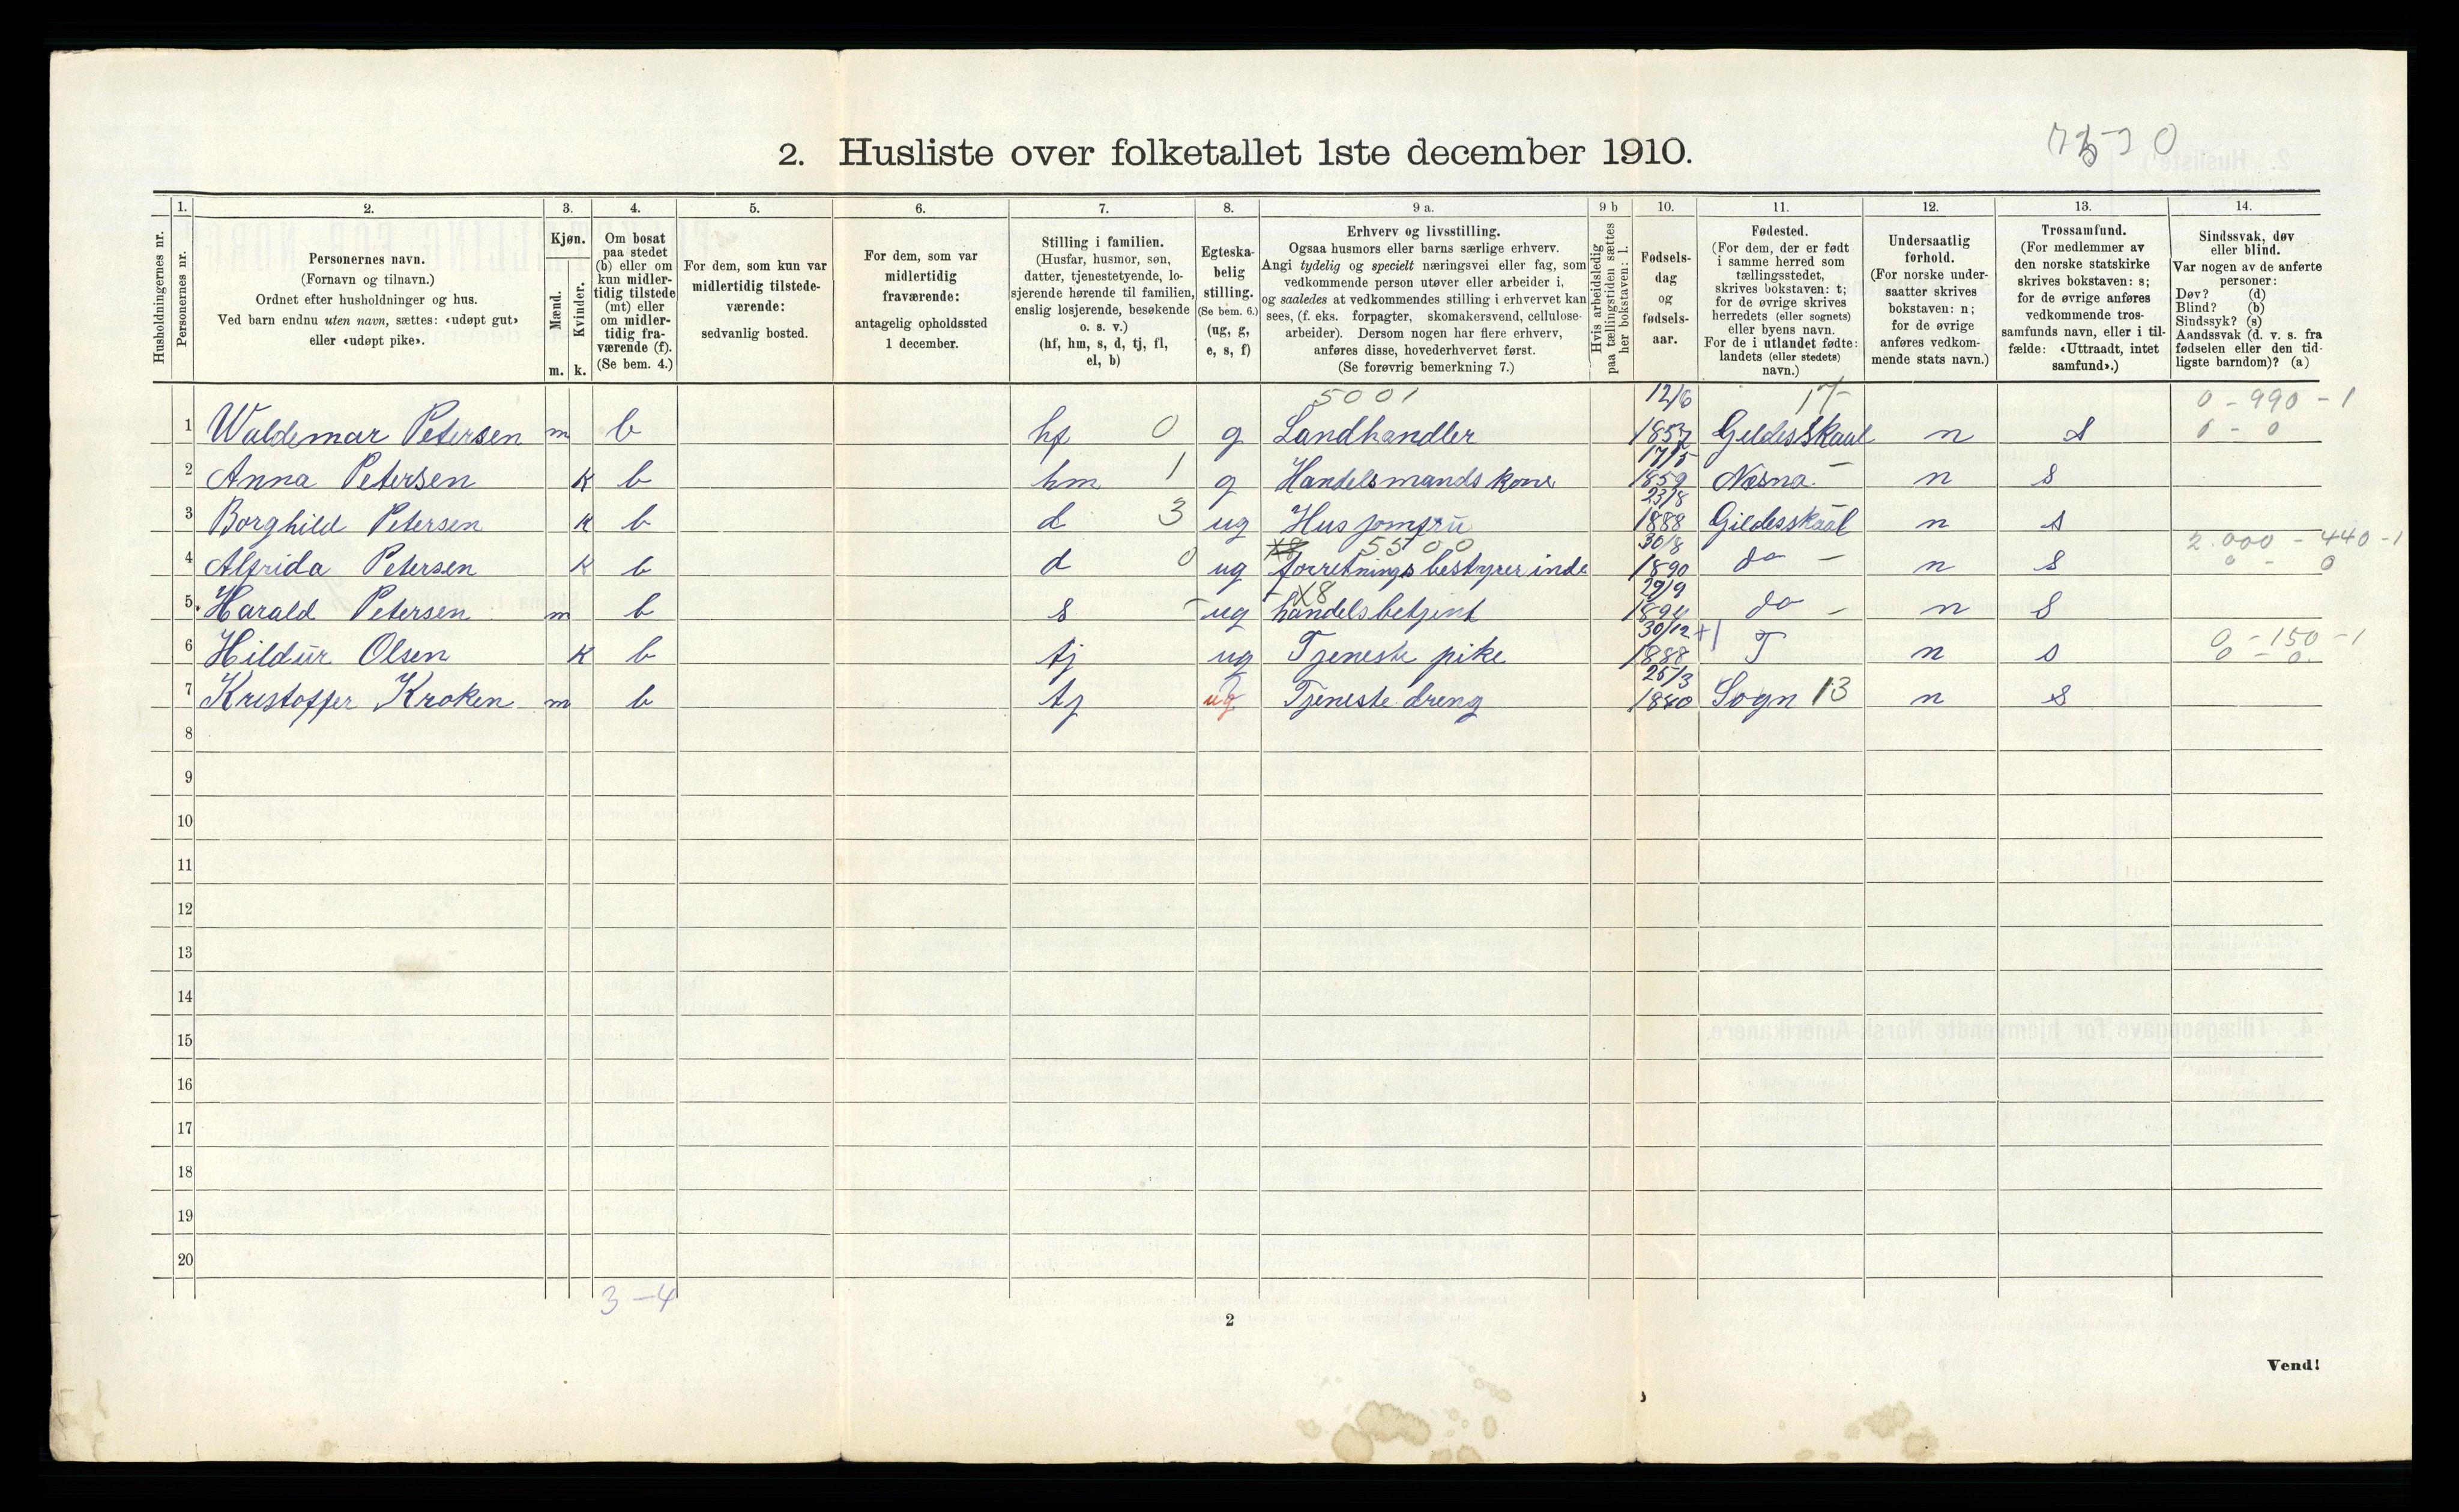 2. Husliste over folketallet 1ste december 1910.
Husholdningernes nr.
1. Personernes nr.
2. Personernes navn.
(Fornavn og tilnavn.)
Ordnet efter husholdninger og hus.
Ved barn endnu uten navn, sættes: «udøpt gut»
eller «udøpt pike».
3. Kjøn.
Mænd. m.
Kvinder. k.
4. Om bosat
paa stedet
(b) eller om
kun midler-
tidig tilstede
(mt) eller
om midler-
tidig fra-
værende (f).
(Se bem. 4.)
5. For dem, som kun var
midlertidig tilstede-
værende:
sedvanlig bosted.
6. For dem, som var
midlertidig
fraværende:
antagelig opholdssted
1 december.
7. Stilling i familien.
(Husfar, husmor, søn,
datter, tjenestetyende, lo-
sjerende hørende til familien,
enslig losjerende, besøkende
o. s. v.)
(hf, hm, s, d, tj, fl,
el, b)
8. Egteska-
belig
stilling.
(Se bem. 6.)
(ug, g,
e, s, f)
9 a. Erhverv og livsstilling.
Ogsaa husmors eller barns særlige erhverv.
Angi tydelig og specielt næringsvei eller fag, som
vedkommende person utøver eller arbeider i,
og saaledes at vedkommendes stilling i erhvervet kan
sees, (f. eks. forpagter, skomakersvend, cellulose-
arbeider). Dersom nogen har flere erhverv,
anføres disse, hovederhvervet først.
(Se forøvrig bemerkning 7.)
9 b Hvis arbeidsledig
paa tællingstiden sættes
her bokstaven: l.
10. Fødsels-
dag
og
fødsels-
aar.
11. Fødested.
(For dem, der er født
i samme herred som
tællingsstedet,
skrives bokstaven: t;
for de øvrige skrives
herredets (eller sognets)
eller byens navn.
For de i utlandet fødte:
landets (eller stedets)
navn.)
12. Undersaatlig
forhold.
(For norske under-
saatter skrives
bokstaven: n;
for de øvrige
anføres vedkom-
mende stats navn.)
13. Trossamfund.
(For medlemmer av
den norske statskirke
skrives bokstaven: s;
for de øvrige anføres
vedkommende tros-
samfunds navn, eller i til-
fælde: «Uttraadt, intet
samfund».)
14. Sindssvak, døv
eller blind.
Var nogen av de anførte
personer:
Døv? (d)
Blind? (b)
Sindssyk? (s)
Aandssvak (d. v. s. fra
fødselen eller den tid-
ligste barndom)? (a)
5001 12/6 17 0 - 990 - 1
1 Waldemar Petersen m b hf 0 g Landhandler Gildesskaal n s 0 - 0
17/5
2 Anna Petersen k b hm 1 g Handelsmands kone 1859 Næsna - n s
23/8
3 Borghild Petersen k b d 3 ug Husjomfru 1888 Gildesskaal n s
5500 30/8 2.000 - 440 - 1
4 Alfrida Petersen k b d 0 ug forretnings bestyrerinde 1890 do - n s 0 - 0
X8 29/9
5 Harald Petersen m b s - ug handelsbetjent 1894 do - n s
30/12 +1 0 - 150 - 1
6 Hildur Olsen k b tj ug Tjeneste pike 1888 T n s 0 - 0
25/3
7 Kristoffer Kroken m b tj ug Tjeneste dreng 1840 Sogn 13 n s
8
9
10
11
12
13
14
15
16
17
18
19
20
3 - 4
2
Vend!